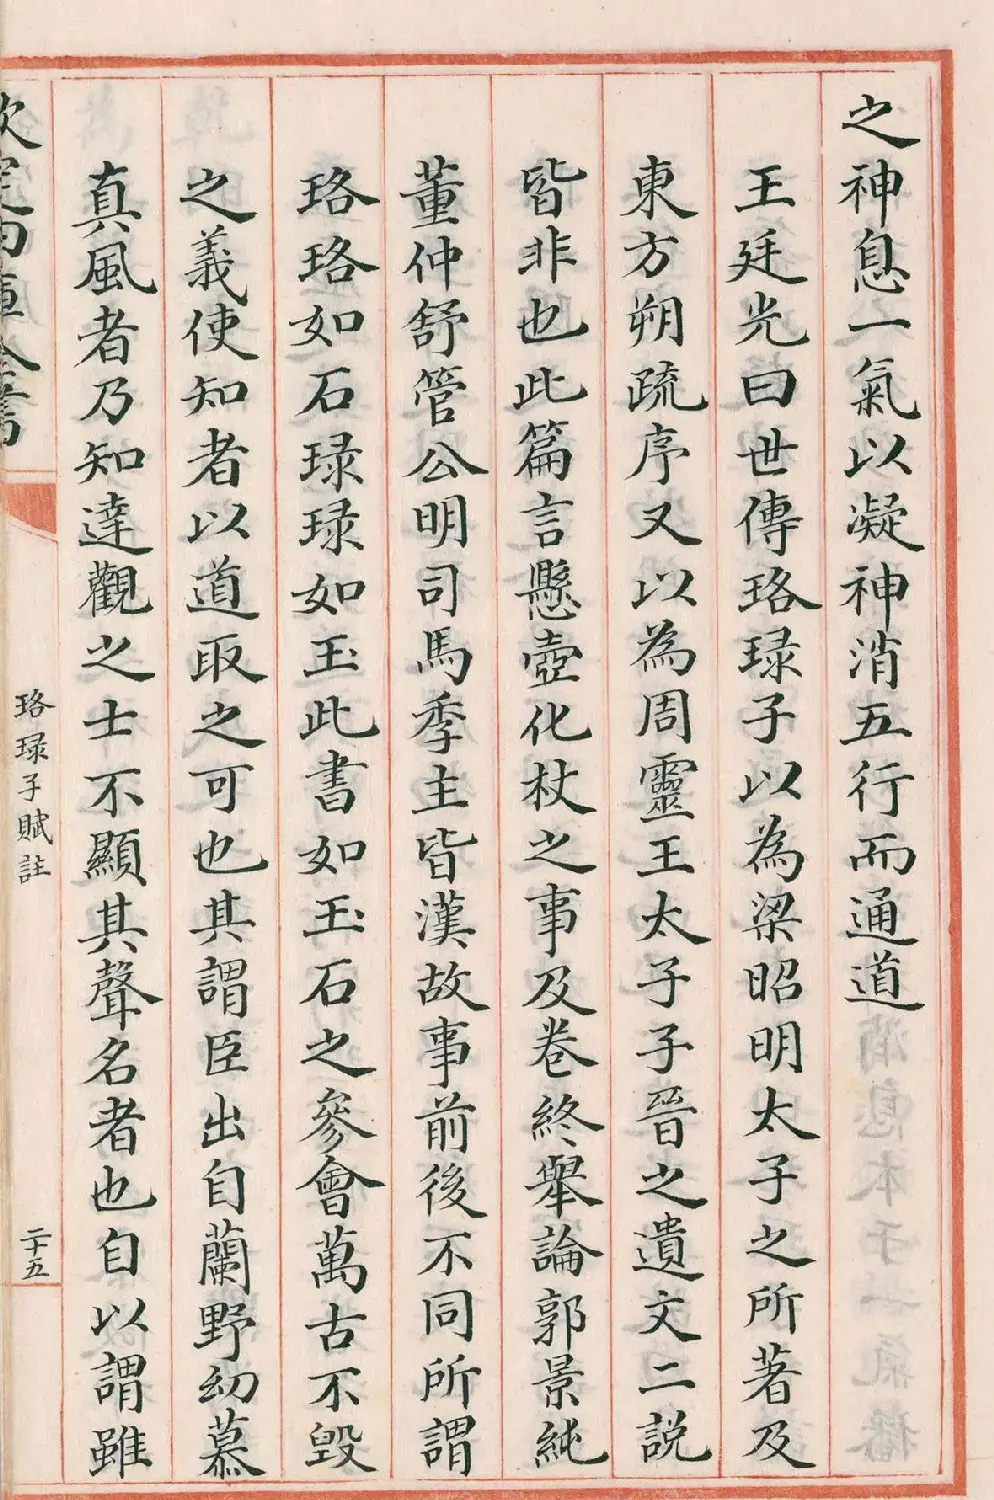 之神息一氣以凝神消五行而通道
王廷光曰世傳珞琭子以為梁昭明太子之所著及
東方朔疏序又以為周靈王太子子晉之遺文二説
皆非也此篇言懸壺化杖之事及卷終舉論郭景純
董仲舒管公明司馬季主皆漢故事前後不同所謂
珞珞如石琭琭如玉此書如玉石之參會萬古不毀
之義使知者以道取之可也其謂臣出自蘭野幼慕
真風者乃知達觀之士不顯其聲名者也自以謂雖
欽定四庫全書
珞琭子賦註
二十五